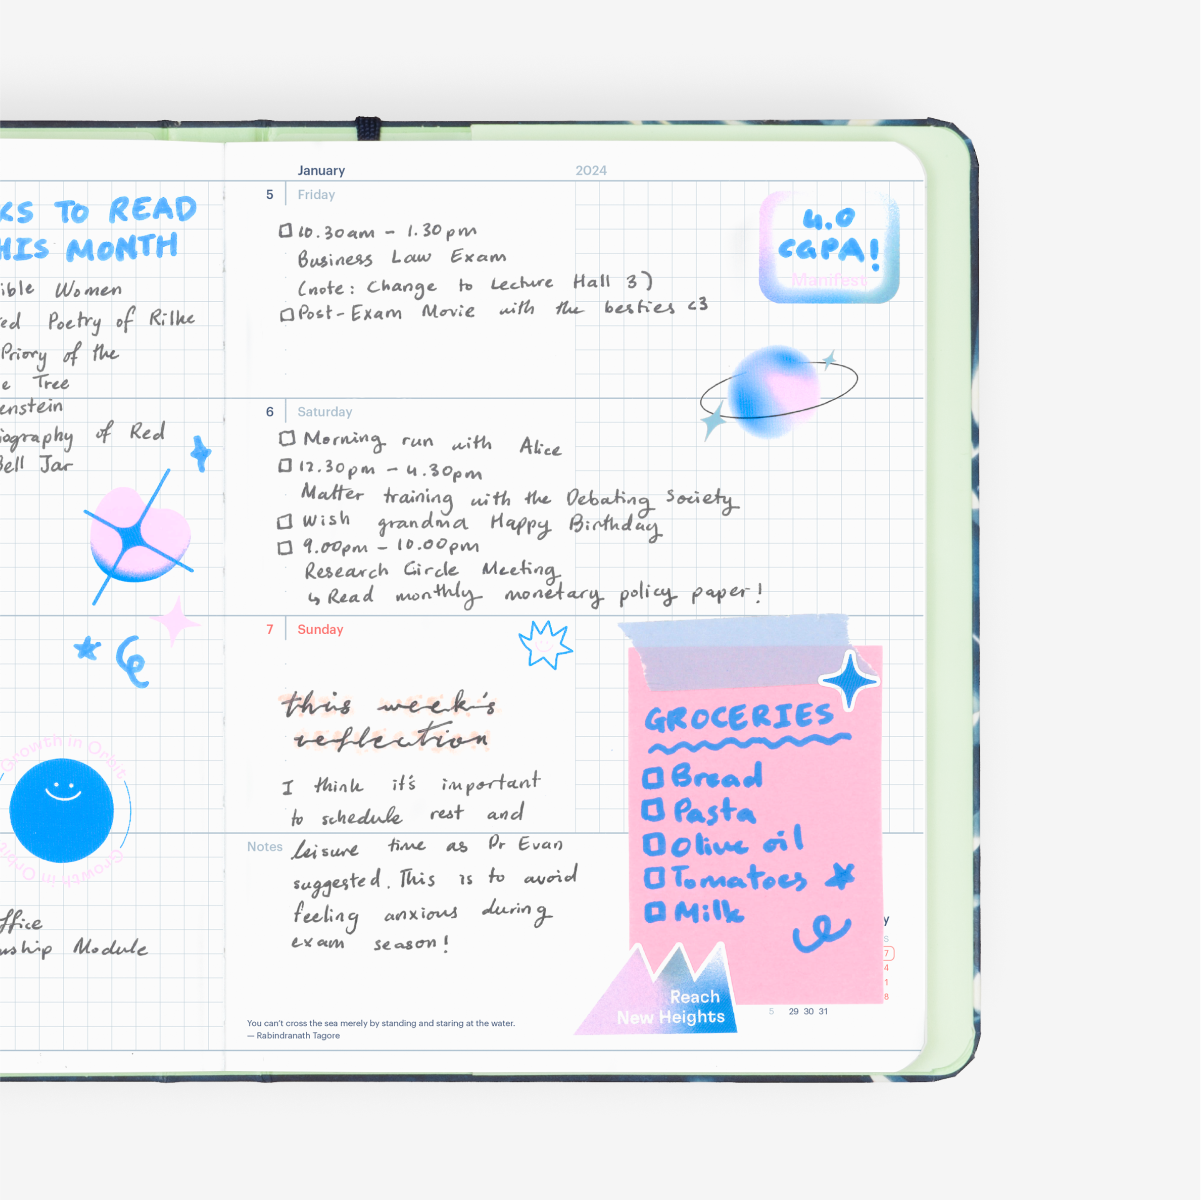 KS TO READ
HIS MONTH
ible Women
red Poetry of Rilke
Priory of the
e Tree
enstein
iography of Red
Bell Jar
Growth in Orbit
Growth in Orbit
ffice
nship Module
January 2024
5 Friday
10.30am - 1.30pm
Business Law Exam
(note: Change to Lecture Hall 3)
Post-Exam Movie with the besties <3
4.0
CGPA!
Manifest
6 Saturday
Morning run with Alice
12.30pm - 4.30pm
Matter training with the Debating Society
Wish grandma Happy Birthday
9.00pm - 10.00pm
Research Circle Meeting
↳ Read monthly monetary policy paper!
7 Sunday
this week's
reflection
I think it's important
to schedule rest and
Notes
leisure time as Dr Evan
suggested. This is to avoid
feeling anxious during
exam season!
GROCERIES
Bread
Pasta
Olive oil
Tomatoes
Milk
Reach
New Heights
y
S
7
4
1
8
5 29 30 31
You can't cross the sea merely by standing and staring at the water.
— Rabindranath Tagore